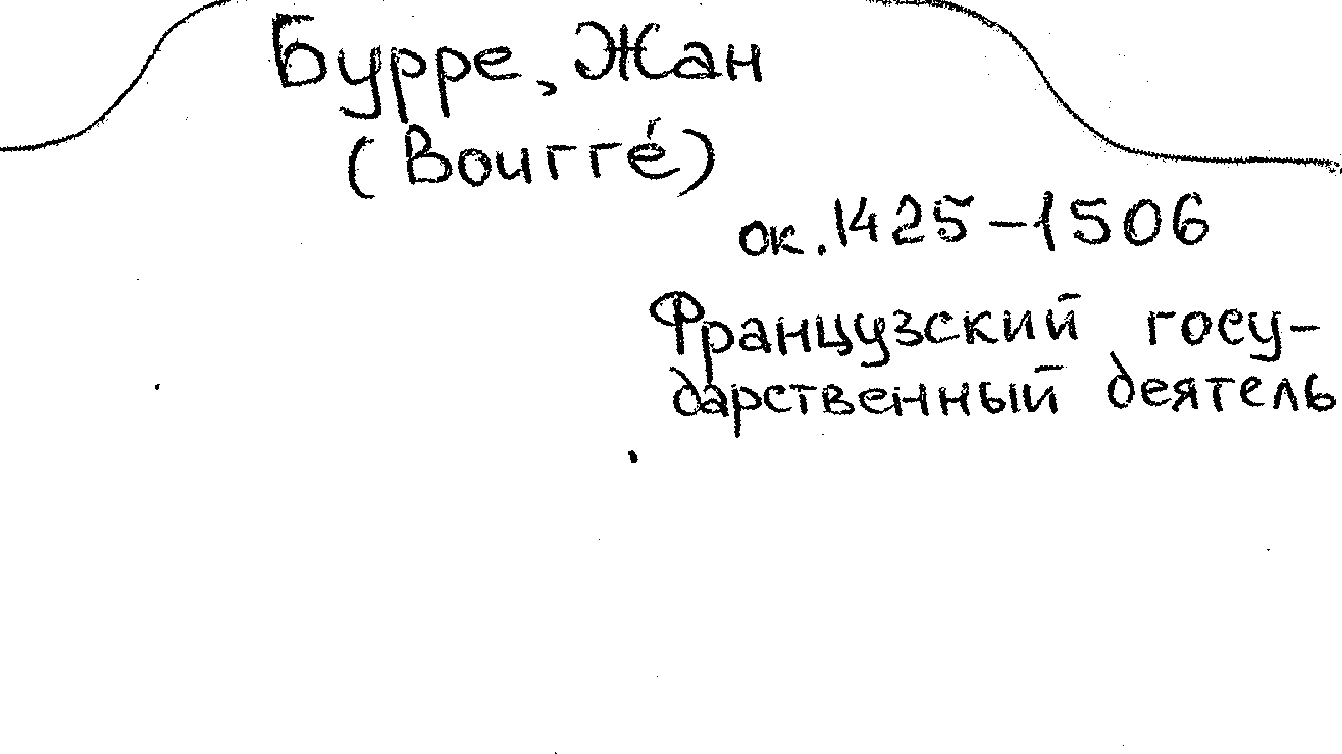 Бурре, Жан
(Bourré)
ок. 1425-1506
Французский госу-
дарственный деятель